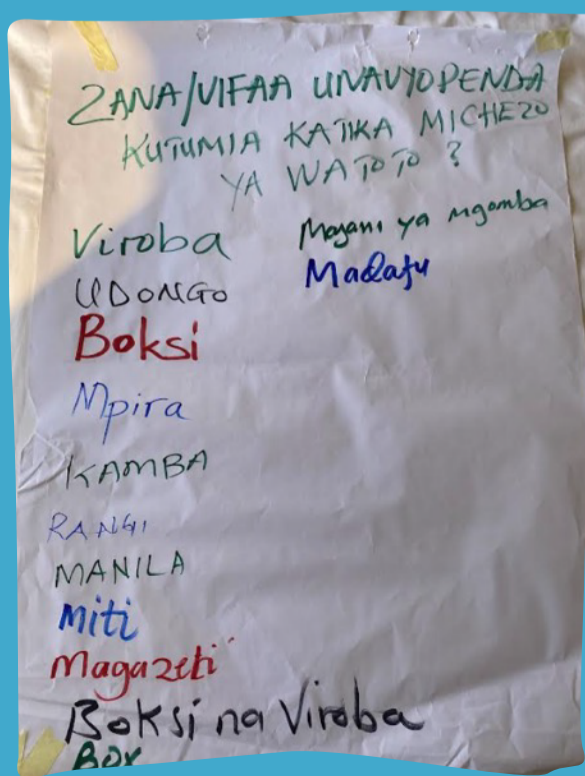 ZANA/VIFAA UNAVYOPENDA
KUTUMIA KATIKA MICHEZO
YA WATOTO ?
Viroba
UDONGO
Boksi
Mpira
KAMBA
RANGI
MANILA
Miti
Magazeti
Boksi na Viroba
BOX
Majani ya mgomba
Madafu